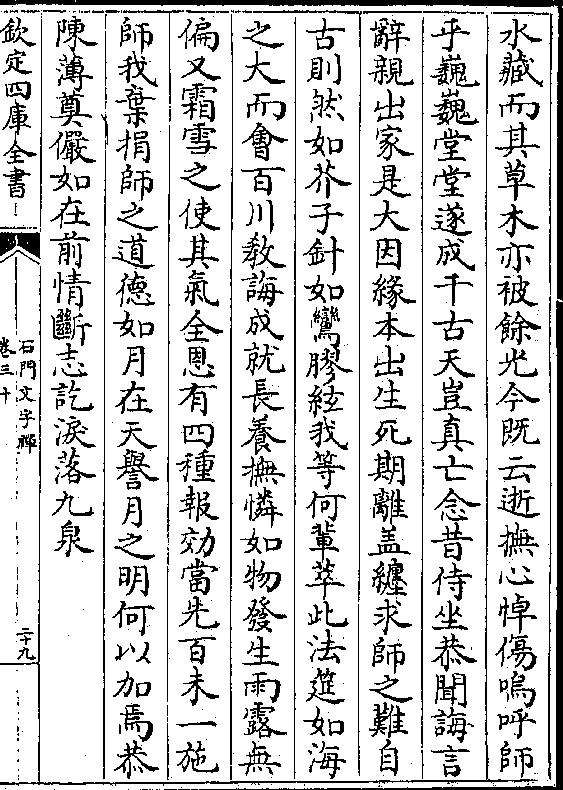 水藏而其草木亦被餘光今既云逝撫心悼傷嗚呼師
乎巍巍堂堂遂成千古天豈真亡念昔侍坐恭聞誨言
辭親出家是大因緣本出生死期離盖纏求師之難自
古則然如芥子針如鸞膠絃我等何輩萃此法筵如海
之大而會百川教誨成就長養撫憐如物發生雨露無
偏又霜雪之使其氣全恩有四種報効當先百未一施
師我棄捐師之道德如月在天譽月之明何以加焉恭
陳薄奠儼如在前情斷志訖淚落九泉
欽定四庫全書
石門文字禪
卷三十
二十九